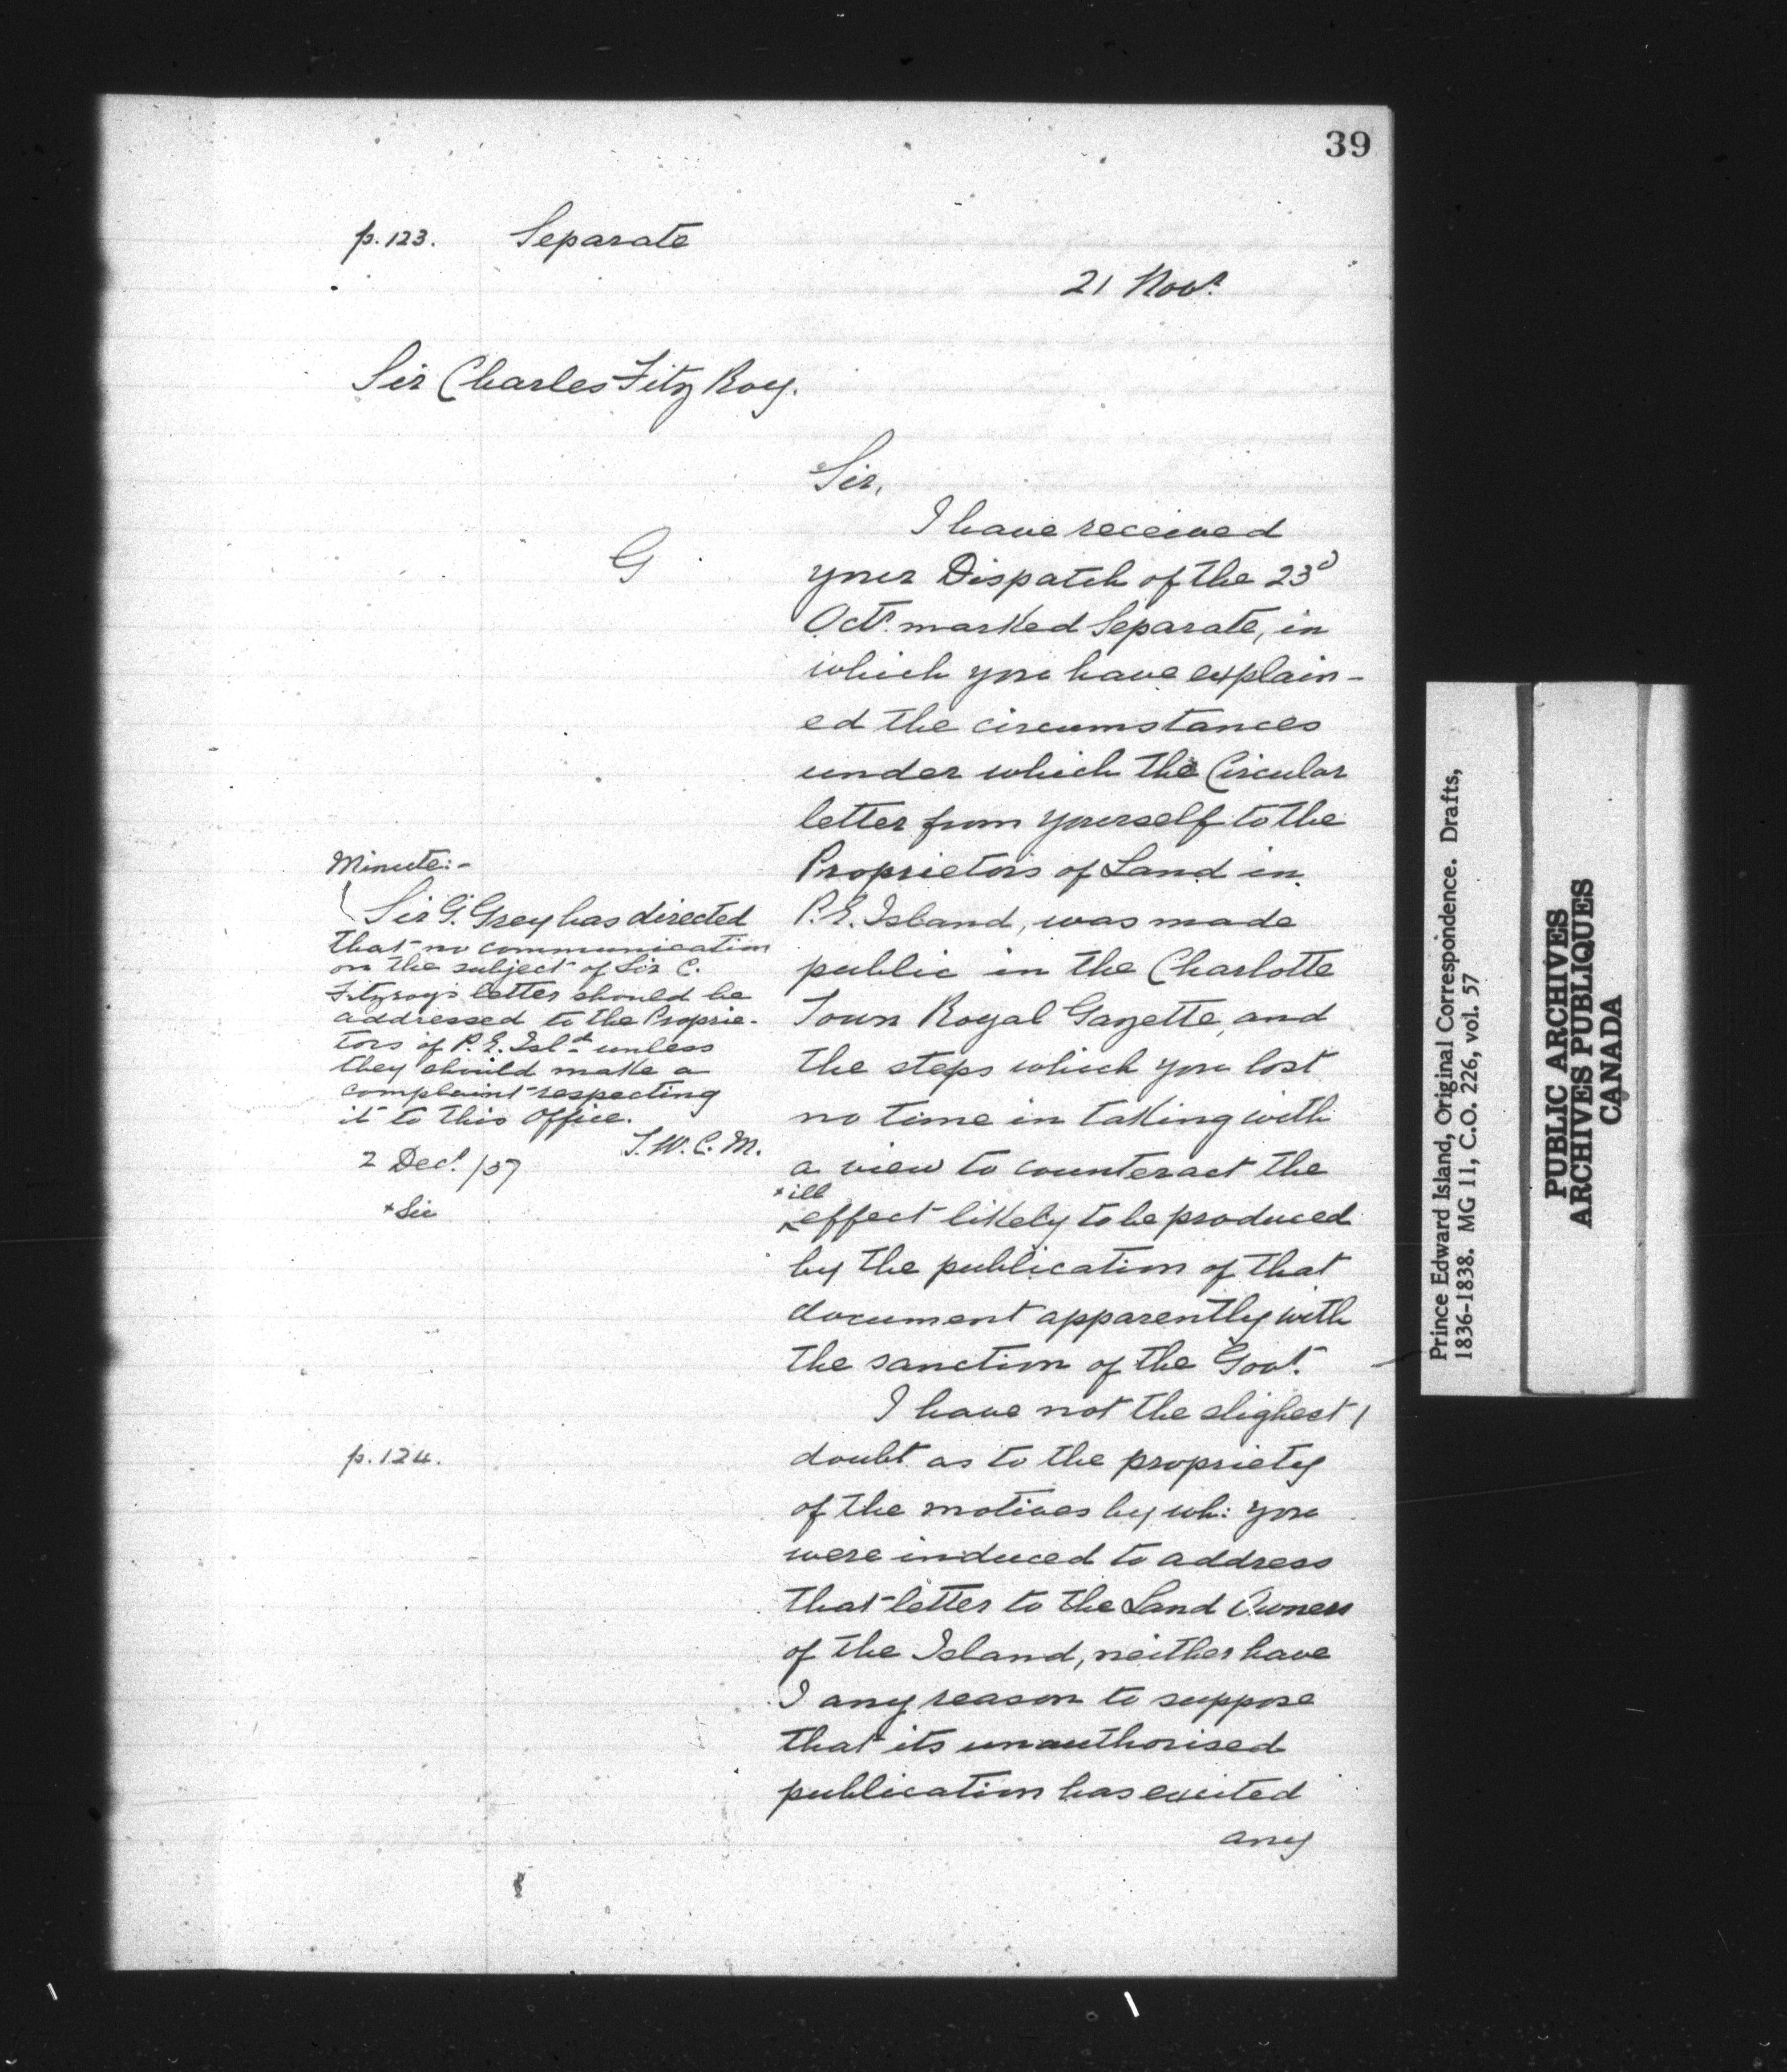 39
p. 123. Separate
21 Novr.
Sir Charles Fitz Roy.
Sir,
I have received
G
your Dispatch of the 23d
Octr. marked Separate, in
which you have explain-
ed the circumstances
under which the Circular
letter from yourself to the
Proprietors of Land in
P.E. Island, was made
public in the Charlotte
Town Royal Gazette, and
the steps which you lost
no time in taking with
a view to counteract the
*ill
effect likely to be produced
by the publication of that
document apparently with
the sanction of the Govt.
I have not the slighest
doubt as to the propriety
of the motives by wh: you
were induced to address
that letter to the Land Owners
of the Island, neither have
I any reason to suppose
that its unauthorised
publication has excited
any
Minute:-
Sir G. Grey has directed
that no communication
on the subject of Sir C.
Fitzroy's letter should be
addressed to the Proprie-
tors of P.E. Isld unless
they should make a
complaint respecting
it to this Office.
T.W.C.M.
2 Decr. /37
*Sic
p. 124.
Prince Edward Island, Original Correspondence. Drafts,
1836-1838. MG 11, C.O. 226, vol. 57
PUBLIC ARCHIVES
ARCHIVES PUBLIQUES
CANADA